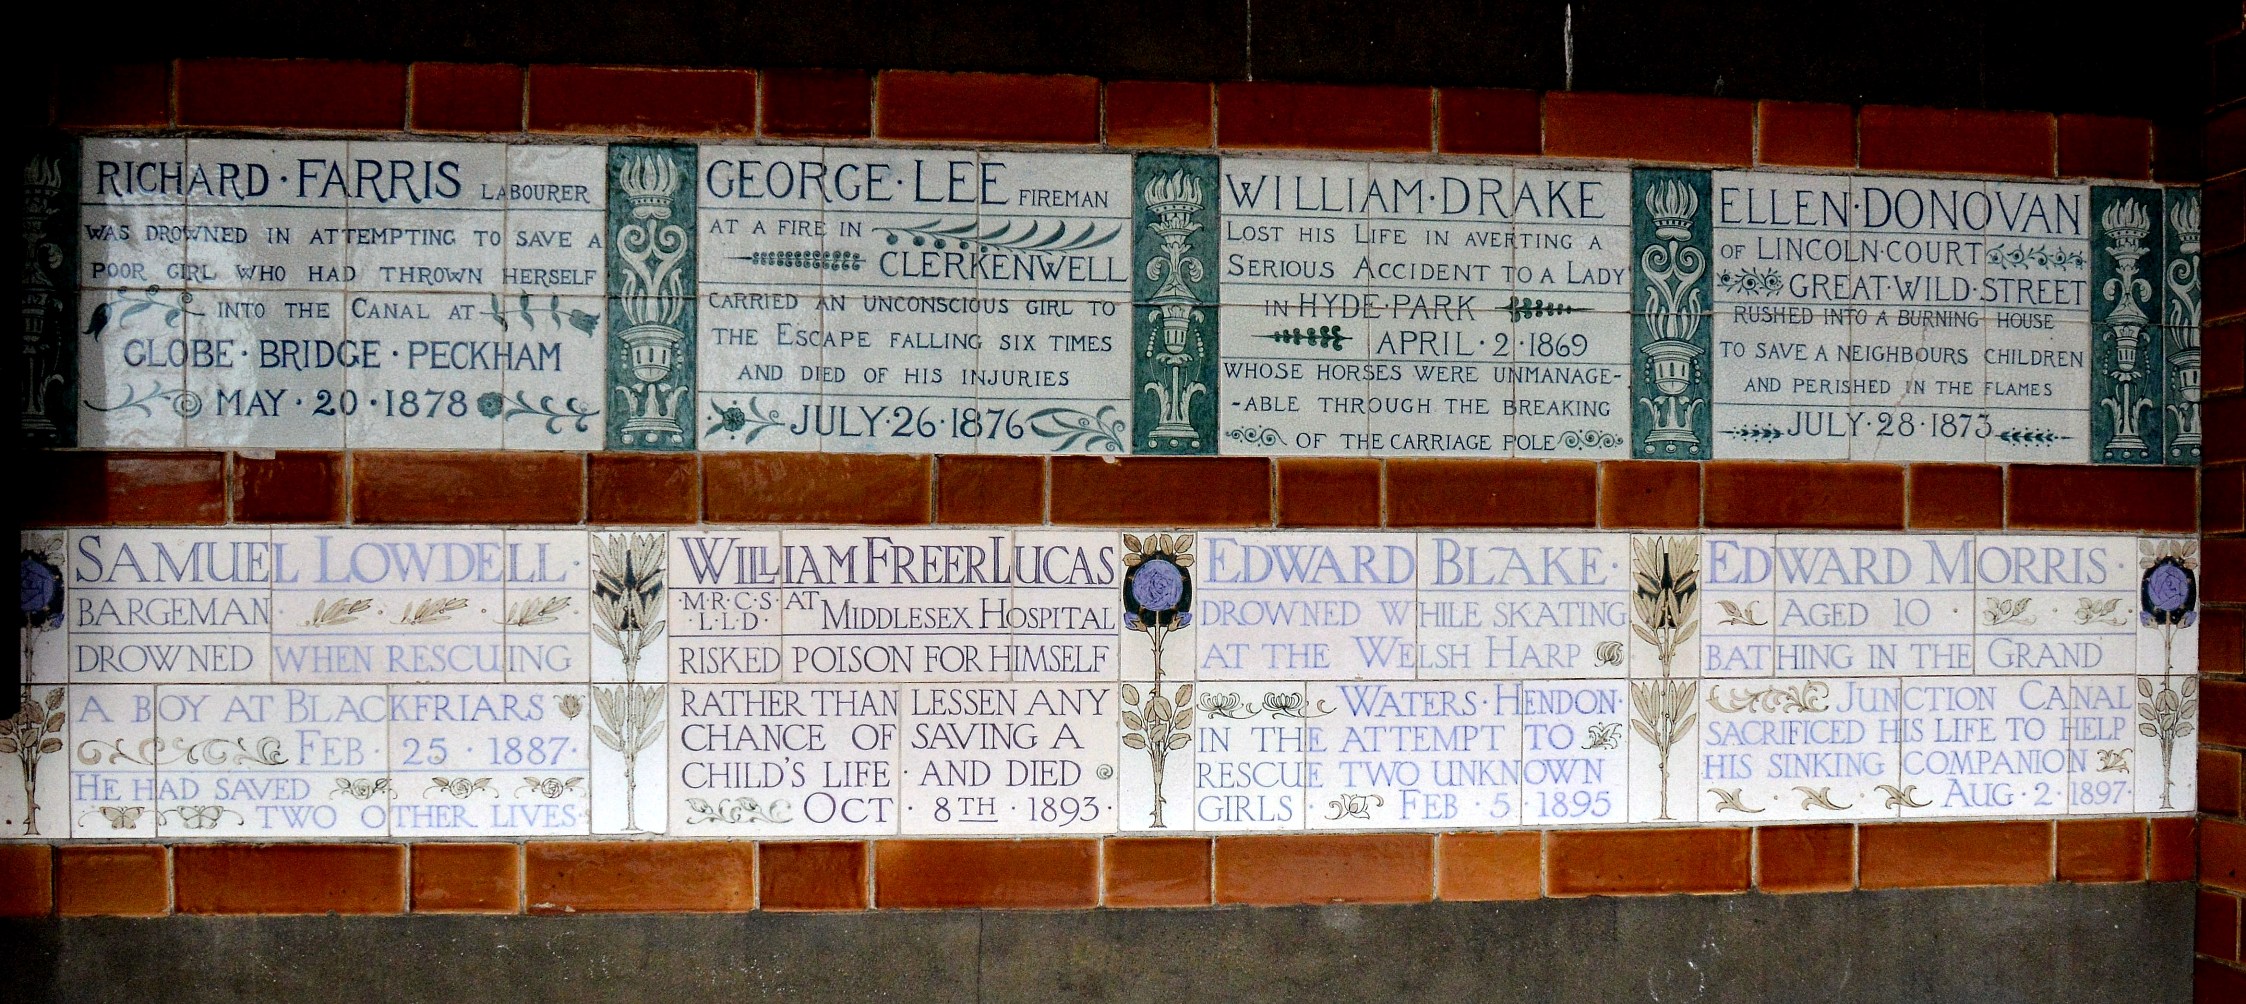 RICHARD · FARRIS LABOURER
WAS DROWNED IN ATTEMPTING TO SAVE A
POOR GIRL WHO HAD THROWN HERSELF
INTO THE CANAL AT
GLOBE · BRIDGE · PECKHAM
MAY · 20 · 1878
GEORGE · LEE FIREMAN
AT A FIRE IN
CLERKENWELL
CARRIED AN UNCONSCIOUS GIRL TO
THE ESCAPE FALLING SIX TIMES
AND DIED OF HIS INJURIES
JULY · 26 · 1876
WILLIAM · DRAKE
LOST HIS LIFE IN AVERTING A
SERIOUS ACCIDENT TO A LADY
IN HYDE · PARK
APRIL · 2 · 1869
WHOSE HORSES WERE UNMANAGE-
-ABLE THROUGH THE BREAKING
OF THE CARRIAGE POLE
ELLEN · DONOVAN
OF LINCOLN · COURT
GREAT · WILD · STREET
RUSHED INTO A BURNING HOUSE
TO SAVE A NEIGHBOURS CHILDREN
AND PERISHED IN THE FLAMES
JULY · 28 · 1873
SAMUEL LOWDELL ·
BARGEMAN
DROWNED WHEN RESCUING
A BOY AT BLACKFRIARS
FEB · 25 · 1887 ·
HE HAD SAVED
TWO OTHER LIVES ·
WILLIAM FREER LUCAS
· M · R · C · S · AT
· L · L · D · MIDDLESEX HOSPITAL
RISKED POISON FOR HIMSELF
RATHER THAN LESSEN ANY
CHANCE OF SAVING A
CHILD'S LIFE · AND DIED
OCT · 8TH · 1893 ·
EDWARD BLAKE ·
DROWNED WHILE SKATING
AT THE WELSH HARP
WATERS · HENDON ·
IN THE ATTEMPT TO
RESCUE TWO UNKNOWN
GIRLS · FEB · 5 · 1895
EDWARD MORRIS ·
AGED 10 ·
BATHING IN THE GRAND
JUNCTION CANAL
SACRIFICED HIS LIFE TO HELP
HIS SINKING COMPANION
AUG · 2 · 1897 ·